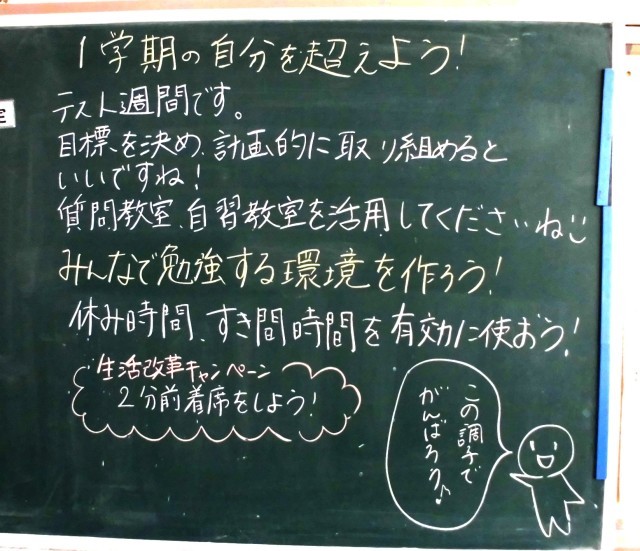 1学期の自分を超えよう!
テスト週間です。
目標を決め、計画的に取り組めると
いいですね!
質問教室、自習教室を活用してくださいね
みんなで勉強する環境を作ろう!
休み時間、すき間時間を有効に使おう!
生活改革キャンペーン
2分前着席をしよう!
この調子で
がんばろう♪